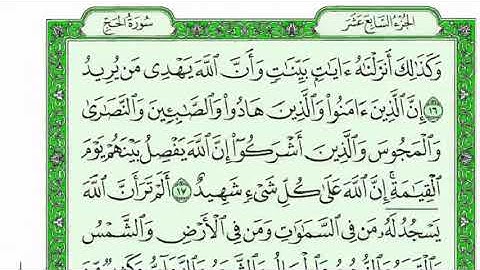 سُورَةُ الحَجِّ
الجُزْءُ السَّابِعَ عَشَرَ
وَكَذَٰلِكَ أَنزَلْنَٰهُ ءَايَٰتٍۭ بَيِّنَٰتٍ وَأَنَّ ٱللَّهَ يَهْدِى مَن يُرِيدُ
١٦ إِنَّ ٱلَّذِينَ ءَامَنُوا۟ وَٱلَّذِينَ هَادُوا۟ وَٱلصَّٰبِـِٔينَ وَٱلنَّصَٰرَىٰ
وَٱلْمَجُوسَ وَٱلَّذِينَ أَشْرَكُوٓا۟ إِنَّ ٱللَّهَ يَفْصِلُ بَيْنَهُمْ يَوْمَ
ٱلْقِيَٰمَةِ ۚ إِنَّ ٱللَّهَ عَلَىٰ كُلِّ شَىْءٍ شَهِيدٌ ١٧ أَلَمْ تَرَ أَنَّ ٱللَّهَ
يَسْجُدُ لَهُۥ مَن فِى ٱلسَّمَٰوَٰتِ وَمَن فِى ٱلْأَرْضِ وَٱلشَّمْسُ